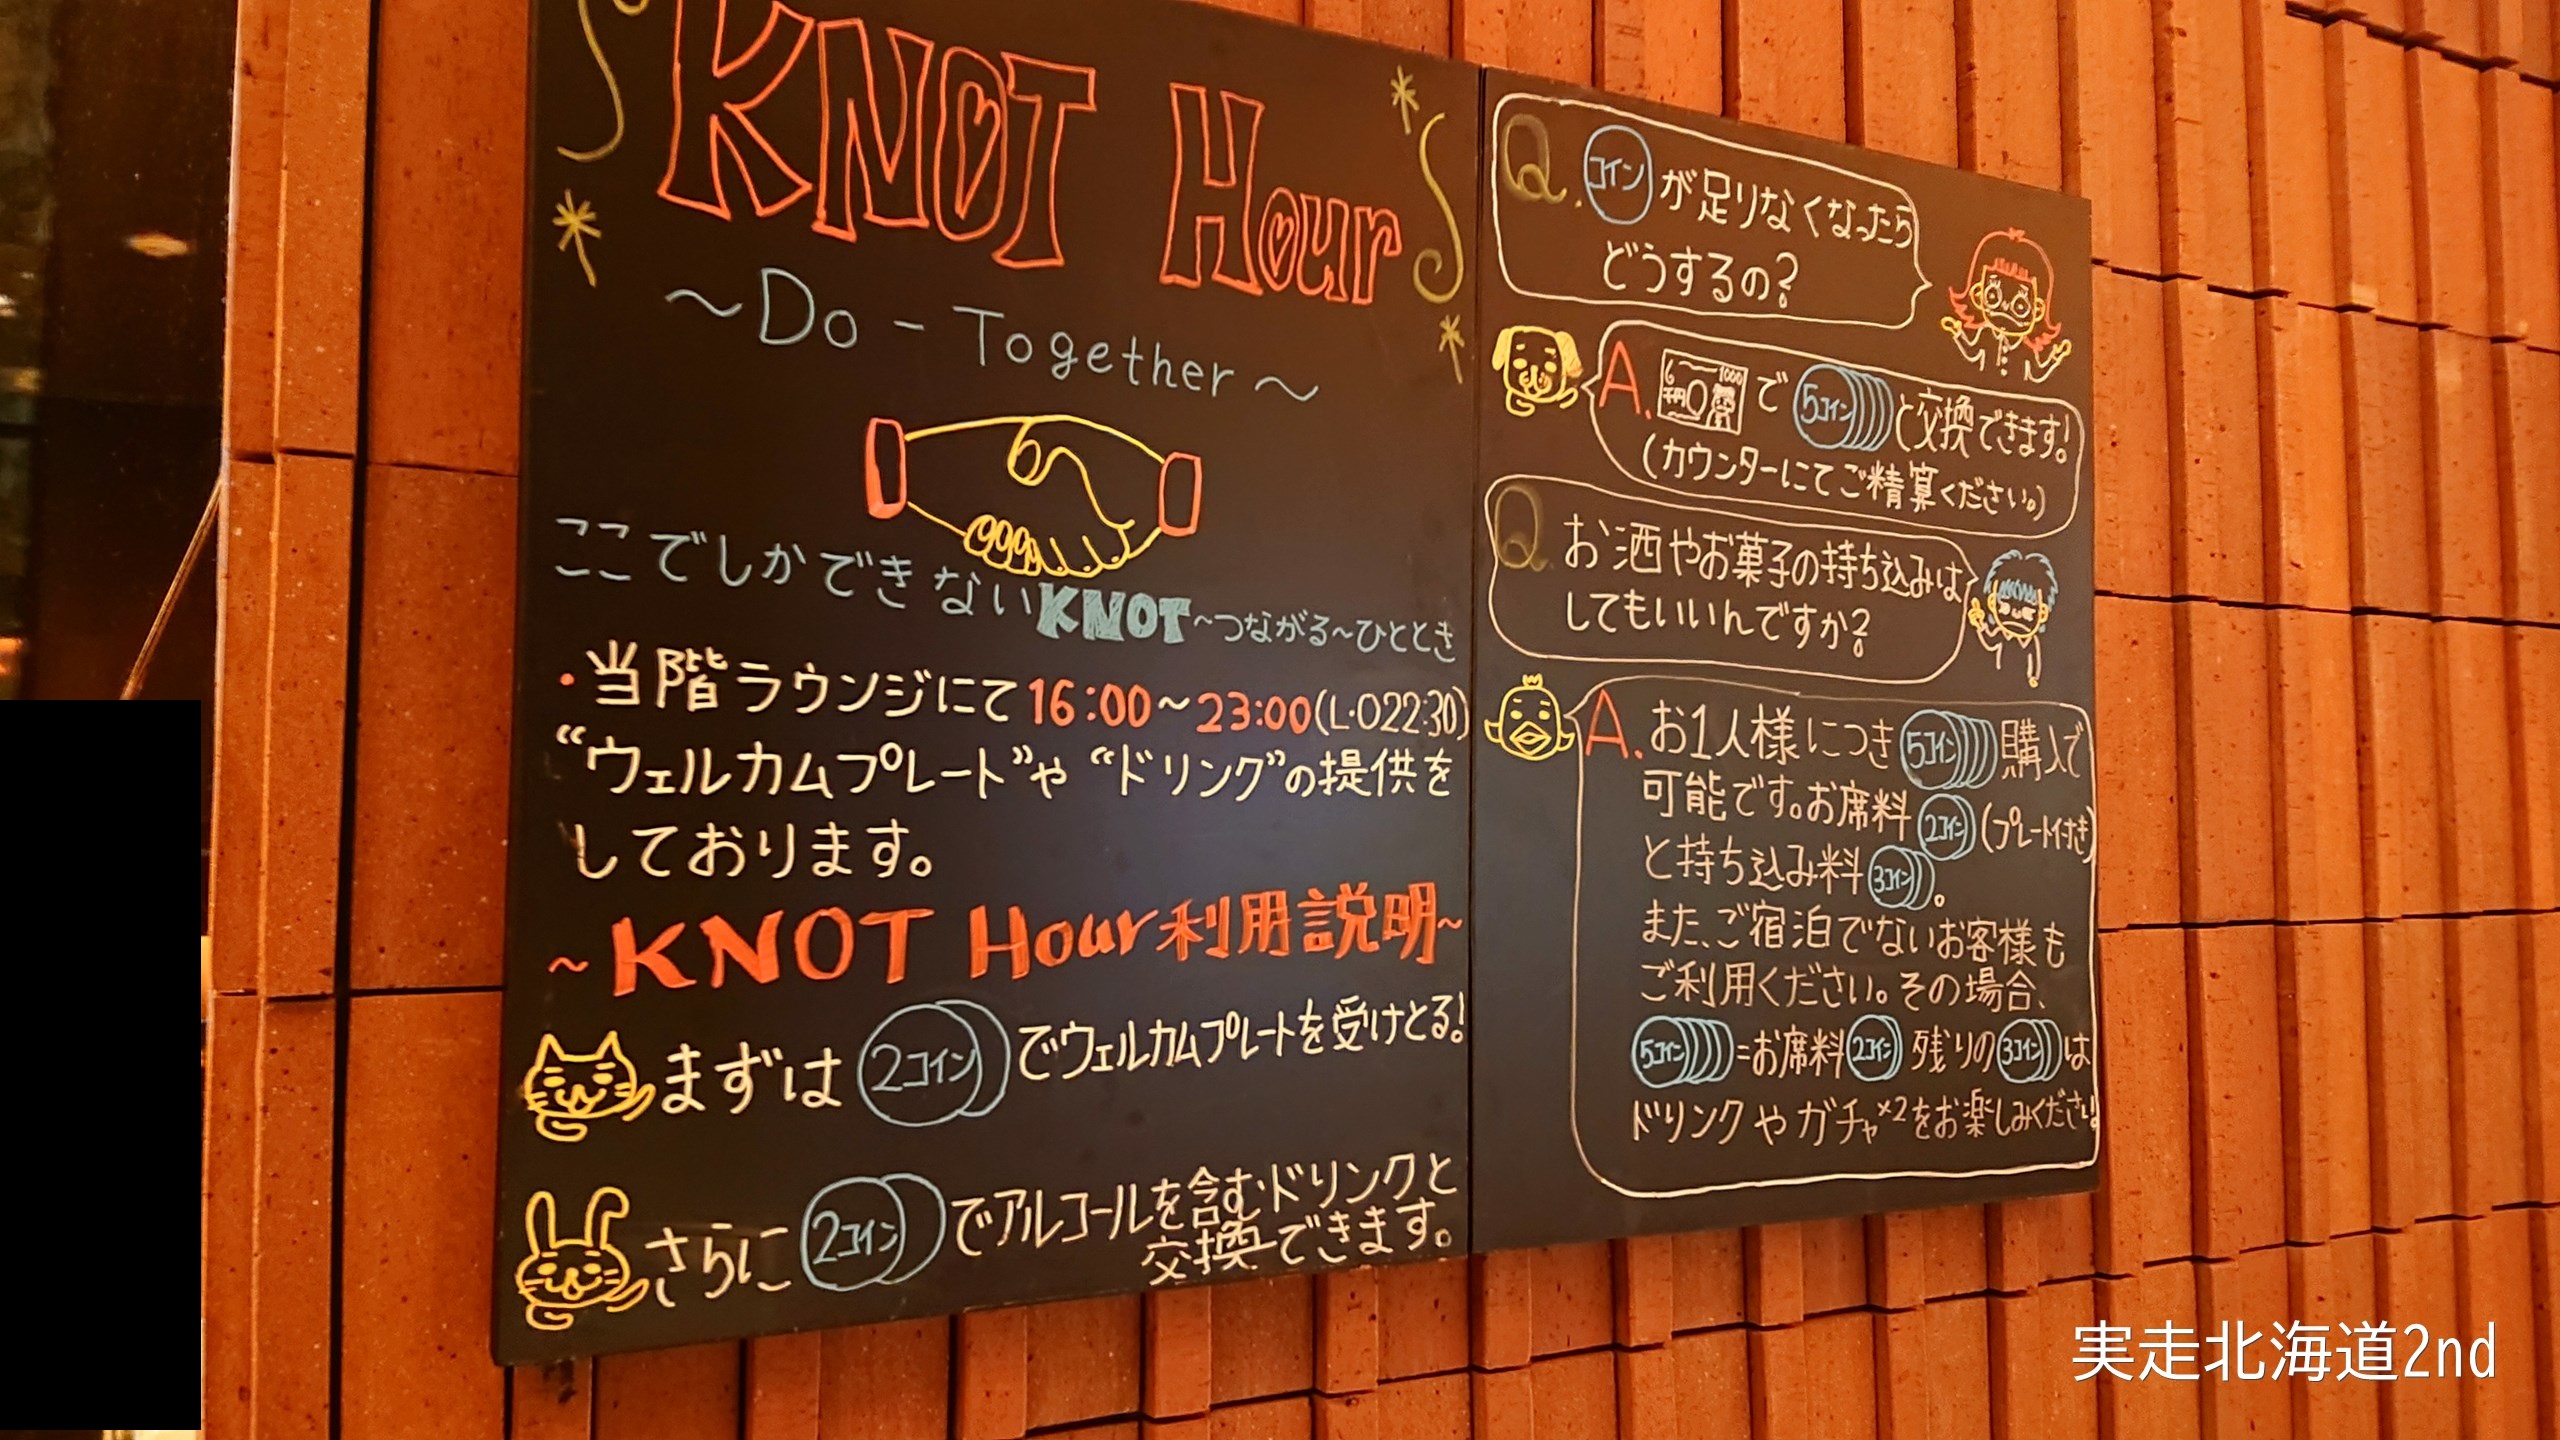 KNOT Hour
～Do-Together～
ここでしかできないKNOT~つながる~ひととき
・当階ラウンジにて16:00～23:00(L・O22:30)
“ウェルカムプレート”や“ドリング”の提供を
しております。
~KNOT Hour利用説明~
まずは2コインでウェルカムプレートを受けとる!
さらに2コインでアルコールを含むドリンクと
交換できます。
Q.コインが足りなくなったら
どうするの?
A.千円1000で5コインと交換できます!
(カウンターにてご精算ください。)
Q.お酒やお菓子の持ち込みは
してもいいんですか?
A.お1人様につき5コイン購入で
可能です。お席料2コイン(プレート付き)
と持ち込み料3コイン。
また、ご宿泊でないお客様も
ご利用ください。その場合、
5コイン=お席料2コイン残りの3コインは
ドリンクやガチャ×2をお楽しみください!
実走北海道2nd